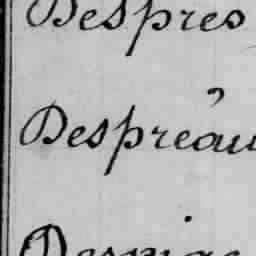 Despres
Despréau